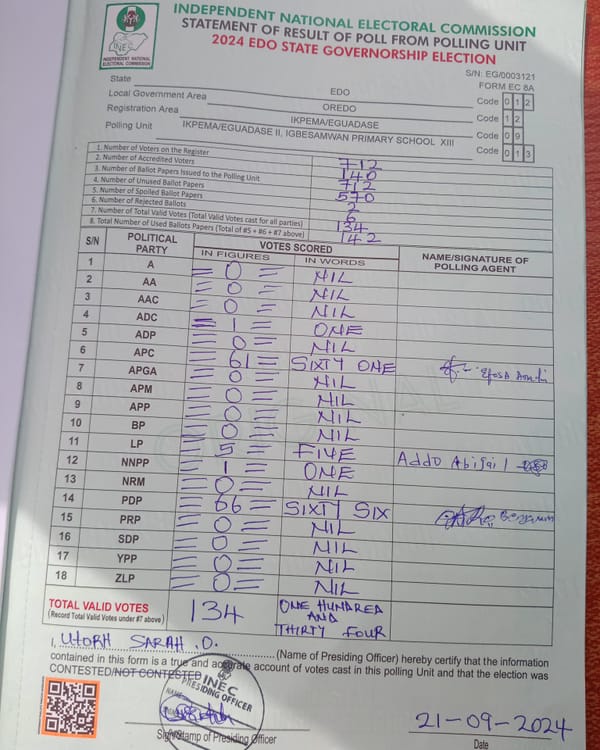 INDEPENDENT NATIONAL ELECTORAL COMMISSION
STATEMENT OF RESULT OF POLL FROM POLLING UNIT
2024 EDO STATE GOVERNORSHIP ELECTION
INEC
INDEPENDENT NATIONAL
ELECTORAL COMMISSION
S/N: EG/0003121
FORM EC 8A
State EDO Code 0 1 2
Local Government Area OREDO Code 1 2
Registration Area IKPEMA/EGUADASE Code 0 9
Polling Unit IKPEMA/EGUADASE II, IGBESAMWAN PRIMARY SCHOOL XIII Code 0 1 3
1. Number of Voters on the Register 712
2. Number of Accredited Voters 140
3. Number of Ballot Papers Issued to the Polling Unit 712
4. Number of Unused Ballot Papers 570
5. Number of Spoiled Ballot Papers 2
6. Number of Rejected Ballots 6
7. Number of Total Valid Votes (Total Valid Votes cast for all parties) 134
8. Total Number of Used Ballots Papers (Total of #5 + #6 + #7 above) 142
S/N POLITICAL PARTY VOTES SCORED NAME/SIGNATURE OF POLLING AGENT
IN FIGURES IN WORDS
1 A =0= NIL
2 AA =0= NIL
3 AAC =0= NIL
4 ADC =1= ONE
5 ADP =0= NIL
6 APC =61= SIXTY ONE
7 APGA =0= NIL
8 APM =0= NIL
9 APP =0= NIL
10 BP =0= NIL
11 LP =5= FIVE Addo Abigail
12 NNPP =1= ONE
13 NRM =0= NIL
14 PDP =66= SIXTY SIX Benjamin
15 PRP =0= NIL
16 SDP =0= NIL
17 YPP =0= NIL
18 ZLP =0= NIL
TOTAL VALID VOTES 134 ONE HUNDRED AND THIRTY FOUR
(Record Total Valid Votes under #7 above)
I, UTORH SARAH .O. (Name of Presiding Officer) hereby certify that the information
contained in this form is a true and accurate account of votes cast in this polling Unit and that the election was
CONTESTED/NOT CONTESTED
INEC
PRESIDING OFFICER
21-09-2024
Sign/Stamp of Presiding Officer
Date